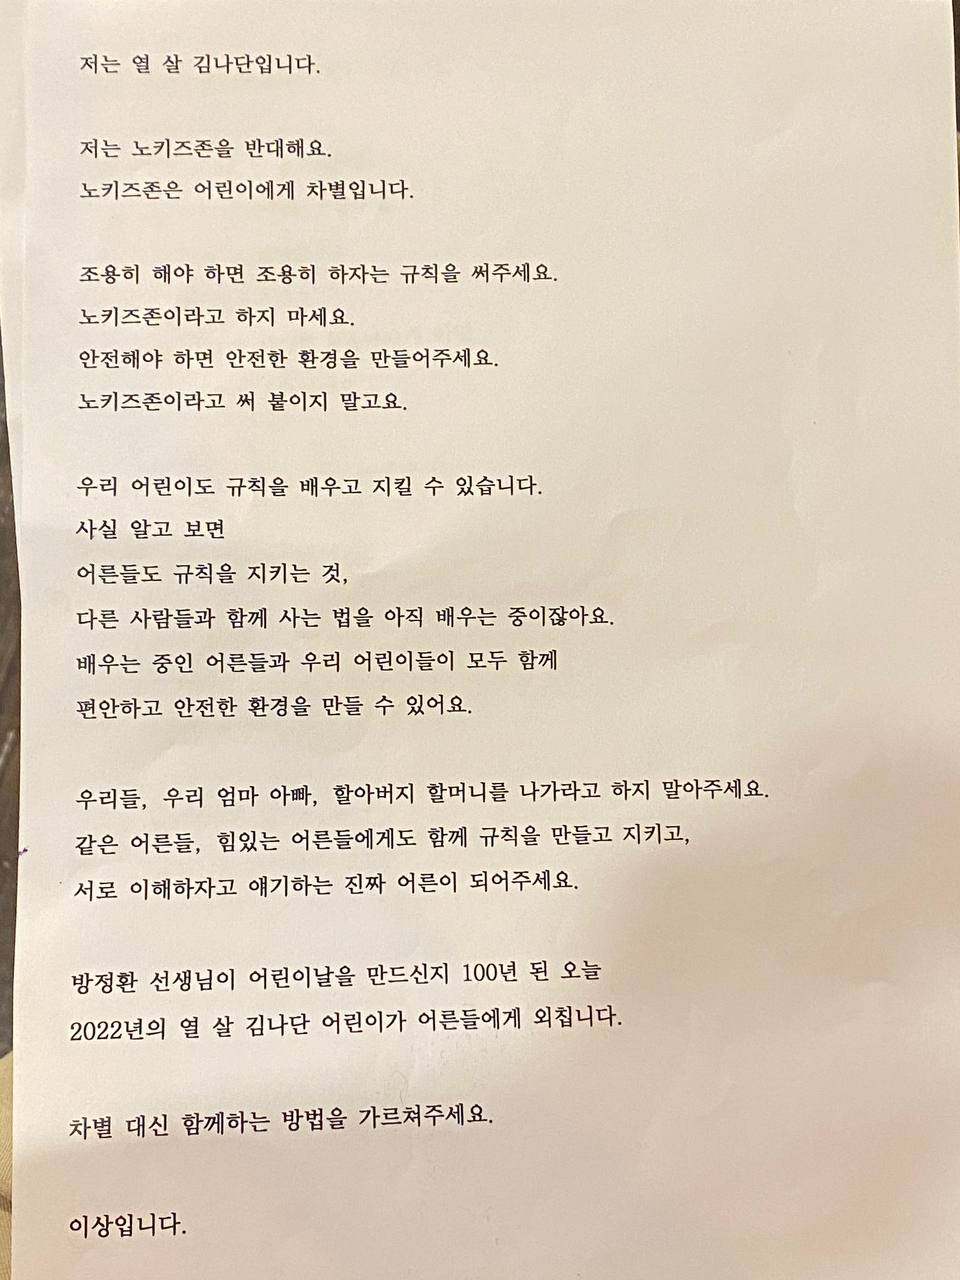 저는 열 살 김나단입니다.
저는 노키즈존을 반대해요.
노키즈존은 어린이에게 차별입니다.
조용히 해야 하면 조용히 하자는 규칙을 써주세요.
노키즈존이라고 하지 마세요.
안전해야 하면 안전한 환경을 만들어주세요.
노키즈존이라고 써 붙이지 말고요.
우리 어린이도 규칙을 배우고 지킬 수 있습니다.
사실 알고 보면
어른들도 규칙을 지키는 것,
다른 사람들과 함께 사는 법을 아직 배우는 중이잖아요.
배우는 중인 어른들과 우리 어린이들이 모두 함께
편안하고 안전한 환경을 만들 수 있어요.
우리들, 우리 엄마 아빠, 할아버지 할머니를 나가라고 하지 말아주세요.
같은 어른들, 힘있는 어른들에게도 함께 규칙을 만들고 지키고,
서로 이해하자고 얘기하는 진짜 어른이 되어주세요.
방정환 선생님이 어린이날을 만드신지 100년 된 오늘
2022년의 열 살 김나단 어린이가 어른들에게 외칩니다.
차별 대신 함께하는 방법을 가르쳐주세요.
이상입니다.